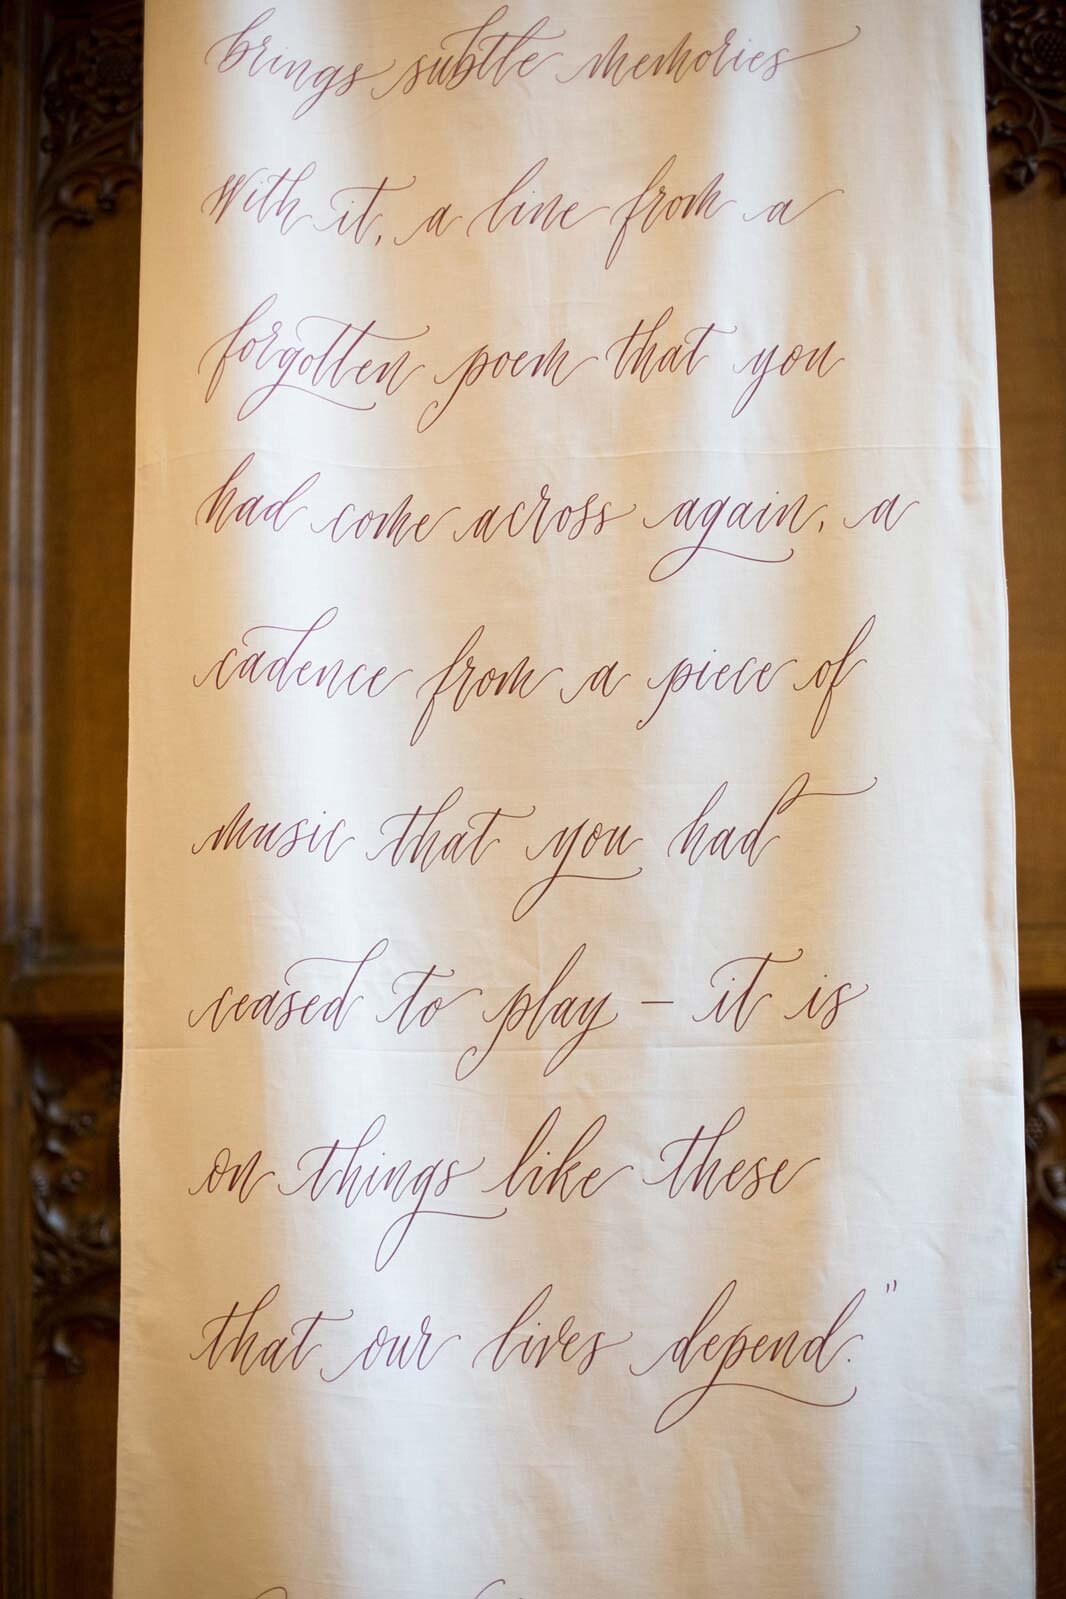 brings subtle memories
With it, a line from a
forgotten poem that you
had come across again, a
cadence from a piece of
music that you had
ceased to play – it is
on things like these
that our lives depend."